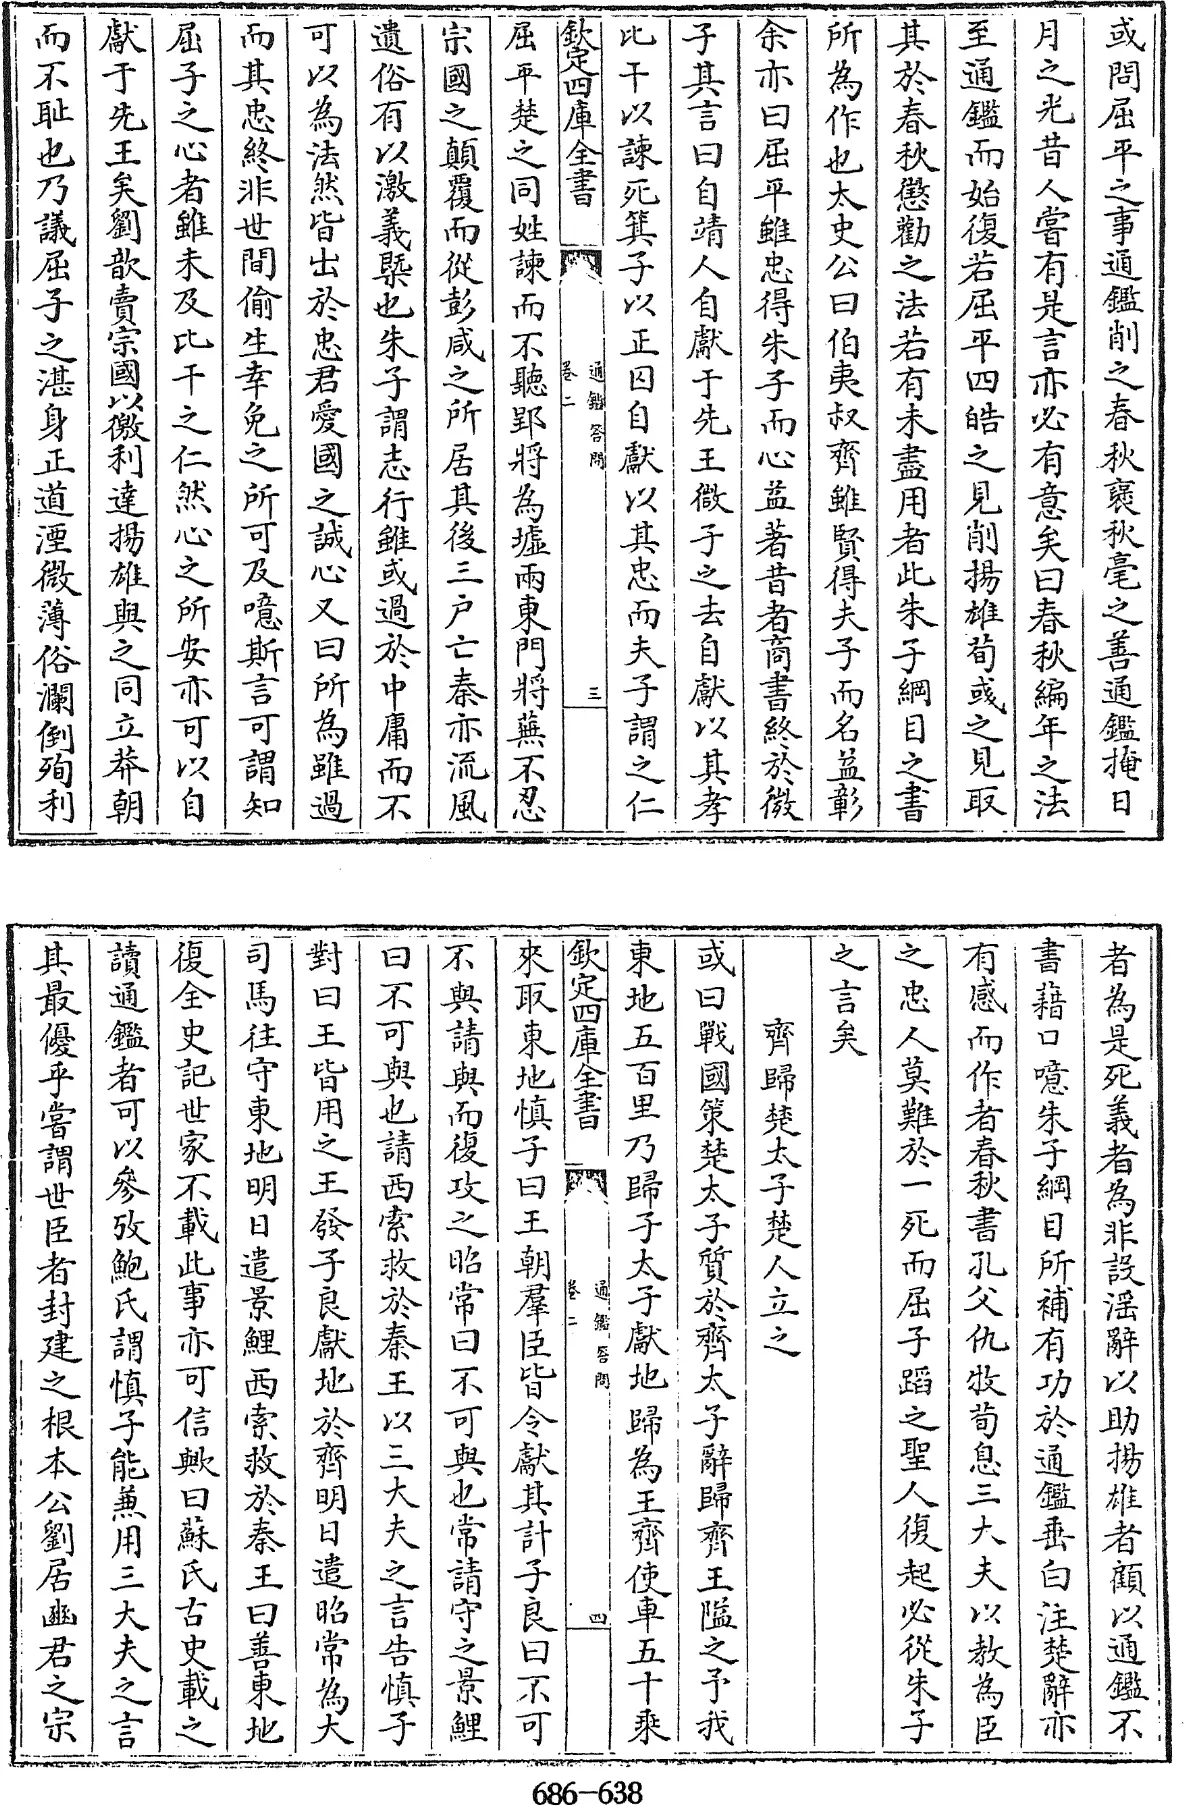 或問屈平之事通鑑削之春秋褒秋毫之善通鑑掩日
月之光昔人嘗有是言亦必有意矣曰春秋編年之法
至通鑑而始復若屈平四皓之見削揚雄荀彧之見取
其於春秋懲勸之法若有未盡用者此朱子綱目之書
所為作也太史公曰伯夷叔齊雖賢得夫子而名益彰
余亦曰屈平雖忠得朱子而心益著昔者商書終於微
子其言曰自靖人自獻于先王微子之去自獻以其孝
比干以諫死箕子以正囚自獻以其忠而夫子謂之仁
欽定四庫全書
通鑑答問
卷二
三
屈平楚之同姓諫而不聽郢將為墟兩東門將蕪不忍
宗國之顛覆而從彭咸之所居其後三户亡秦亦流風
遺俗有以激義槩也朱子謂志行雖或過於中庸而不
可以為法然皆出於忠君愛國之誠心又曰所為雖過
而其忠終非世間偷生幸免之所可及噫斯言可謂知
屈子之心者雖未及比干之仁然心之所安亦可以自
獻于先王矣劉歆賣宗國以徼利達揚雄與之同立莽朝
而不耻也乃議屈子之湛身正道湮微薄俗瀾倒殉利
者為是死義者為非設淫辭以助揚雄者顧以通鑑不
書藉口噫朱子綱目所補有功於通鑑垂白注楚辭亦
有感而作者春秋書孔父仇牧荀息三大夫以教為臣
之忠人莫難於一死而屈子蹈之聖人復起必從朱子
之言矣
齊歸楚太子楚人立之
或曰戰國策楚太子質於齊太子辭歸齊王隘之予我
東地五百里乃歸子太子獻地歸為王齊使車五十乘
欽定四庫全書
通鑑答問
卷二
四
來取東地慎子曰王朝羣臣皆令獻其計子良曰不可
不與請與而復攻之昭常曰不可與也常請守之景鯉
曰不可與也請西索救於秦王以三大夫之言告慎子
對曰王皆用之王發子良獻地於齊明日遣昭常為大
司馬往守東地明日遣景鯉西索救於秦王曰善東地
復全史記世家不載此事亦可信歟曰蘇氏古史載之
讀通鑑者可以參攷鮑氏謂慎子能兼用三大夫之言
其最優乎嘗謂世臣者封建之根本公劉居豳君之宗
686-638